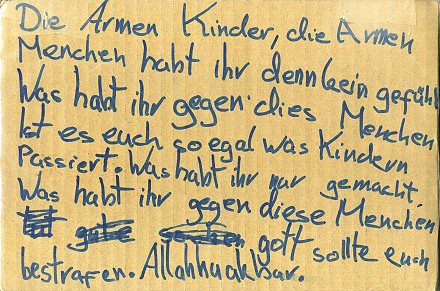 Die Armen Kinder, die Armen
Menchen habt ihr denn kein gefühl
Was habt ihr gegen dies Menchen
Ist es euch so egal was Kindern
Passiert. Was habt ihr nur gemacht,
Was habt ihr gegen diese Menchen
gott sollte euch
bestrafen. Allahhuakbar.